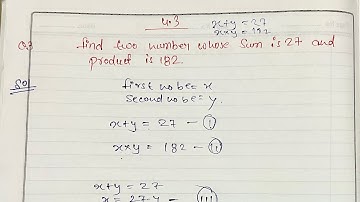 4.3
x+y = 27
x×y = 182
Q.3 find two number whose sum is 27 and
product is 182.
Sol
first no be = x
Second no be = y
x+y = 27 — (i)
x×y = 182 — (ii)
x+y = 27
x = 27-y — (iii)